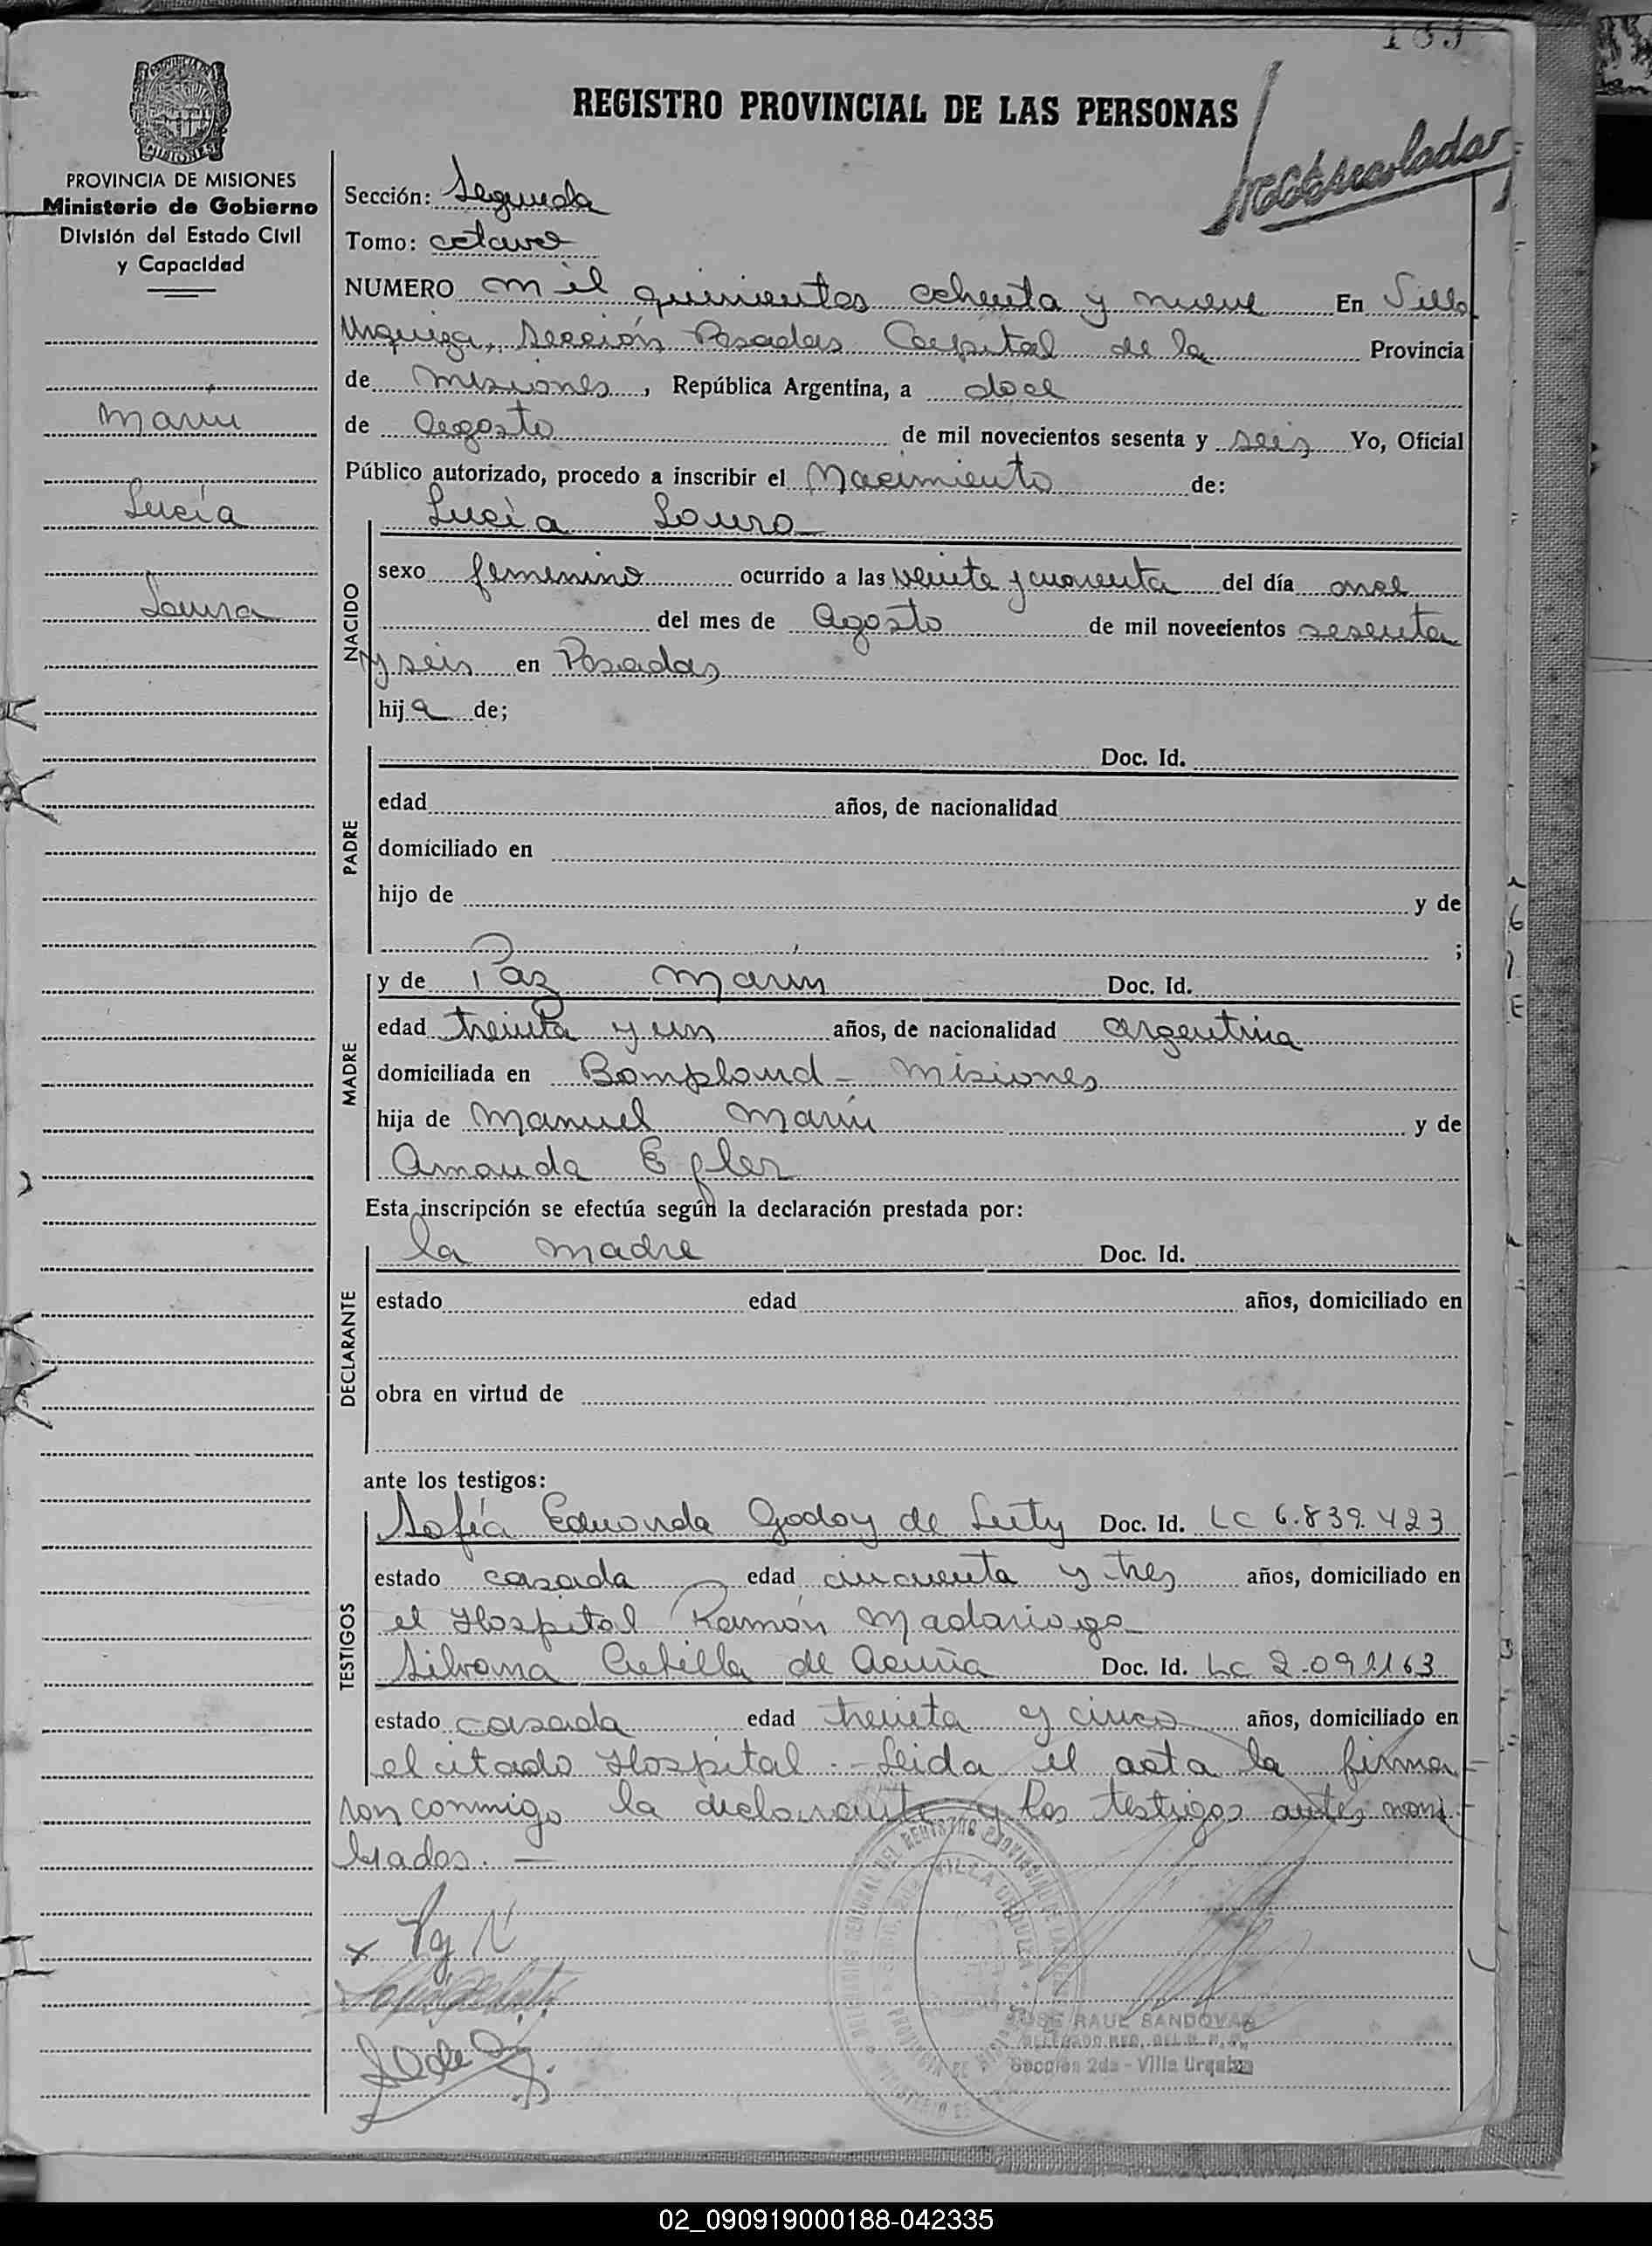 REGISTRO PROVINCIAL DE LAS PERSONAS
PROVINCIA DE MISIONES
Ministerio de Gobierno
División del Estado Civil
y Capacidad
Marin
Lucía
Laura
Sección: Segunda
Tomo: octavo
NUMERO mil quinientos ochenta y nueve En Villa
Urquiza, Sección Posadas Capital de la Provincia
de Misiones, República Argentina, a doce
de Agosto de mil novecientos sesenta y seis Yo, Oficial
Público autorizado, procedo a inscribir el Nacimiento de:
NACIDO
Lucía Laura
sexo femenino ocurrido a las veinte y cuarenta del día once
del mes de Agosto de mil novecientos sesenta
y seis en Posadas
hija de;
PADRE
Doc. Id.
edad años, de nacionalidad
domiciliado en
hijo de y de
;
MADRE
y de Paz Marin Doc. Id.
edad treinta y un años, de nacionalidad argentina
domiciliada en Bompland - Misiones
hija de Manuel Marin y de
Amanda
Esta inscripción se efectúa según la declaración prestada por:
DECLARANTE
la madre Doc. Id.
estado edad años, domiciliado en
obra en virtud de
ante los testigos:
TESTIGOS
Sofía Eduarda Godoy de Doc. Id. LC 6.839.423
estado casada edad cincuenta y tres años, domiciliado en
el Hospital Ramón Madariaga
Silvana de Acuña Doc. Id. LC
estado casada edad treinta y cinco años, domiciliado en
el citado Hospital.- Leida el acta la firma-
ron conmigo la declarante y los testigos antes nom-
brados.-
JOSE RAUL SANDOVAL
Sección 2da - Villa Urquiza
02_090919000188-042335